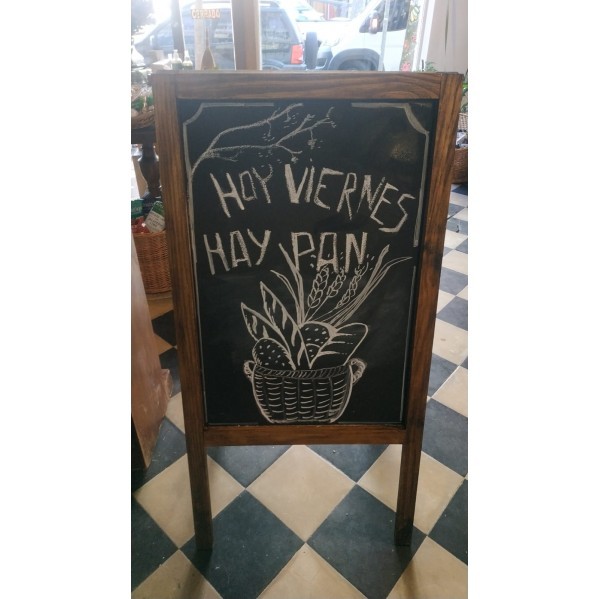 CERRADO
HOY VIERNES
HAY PAN